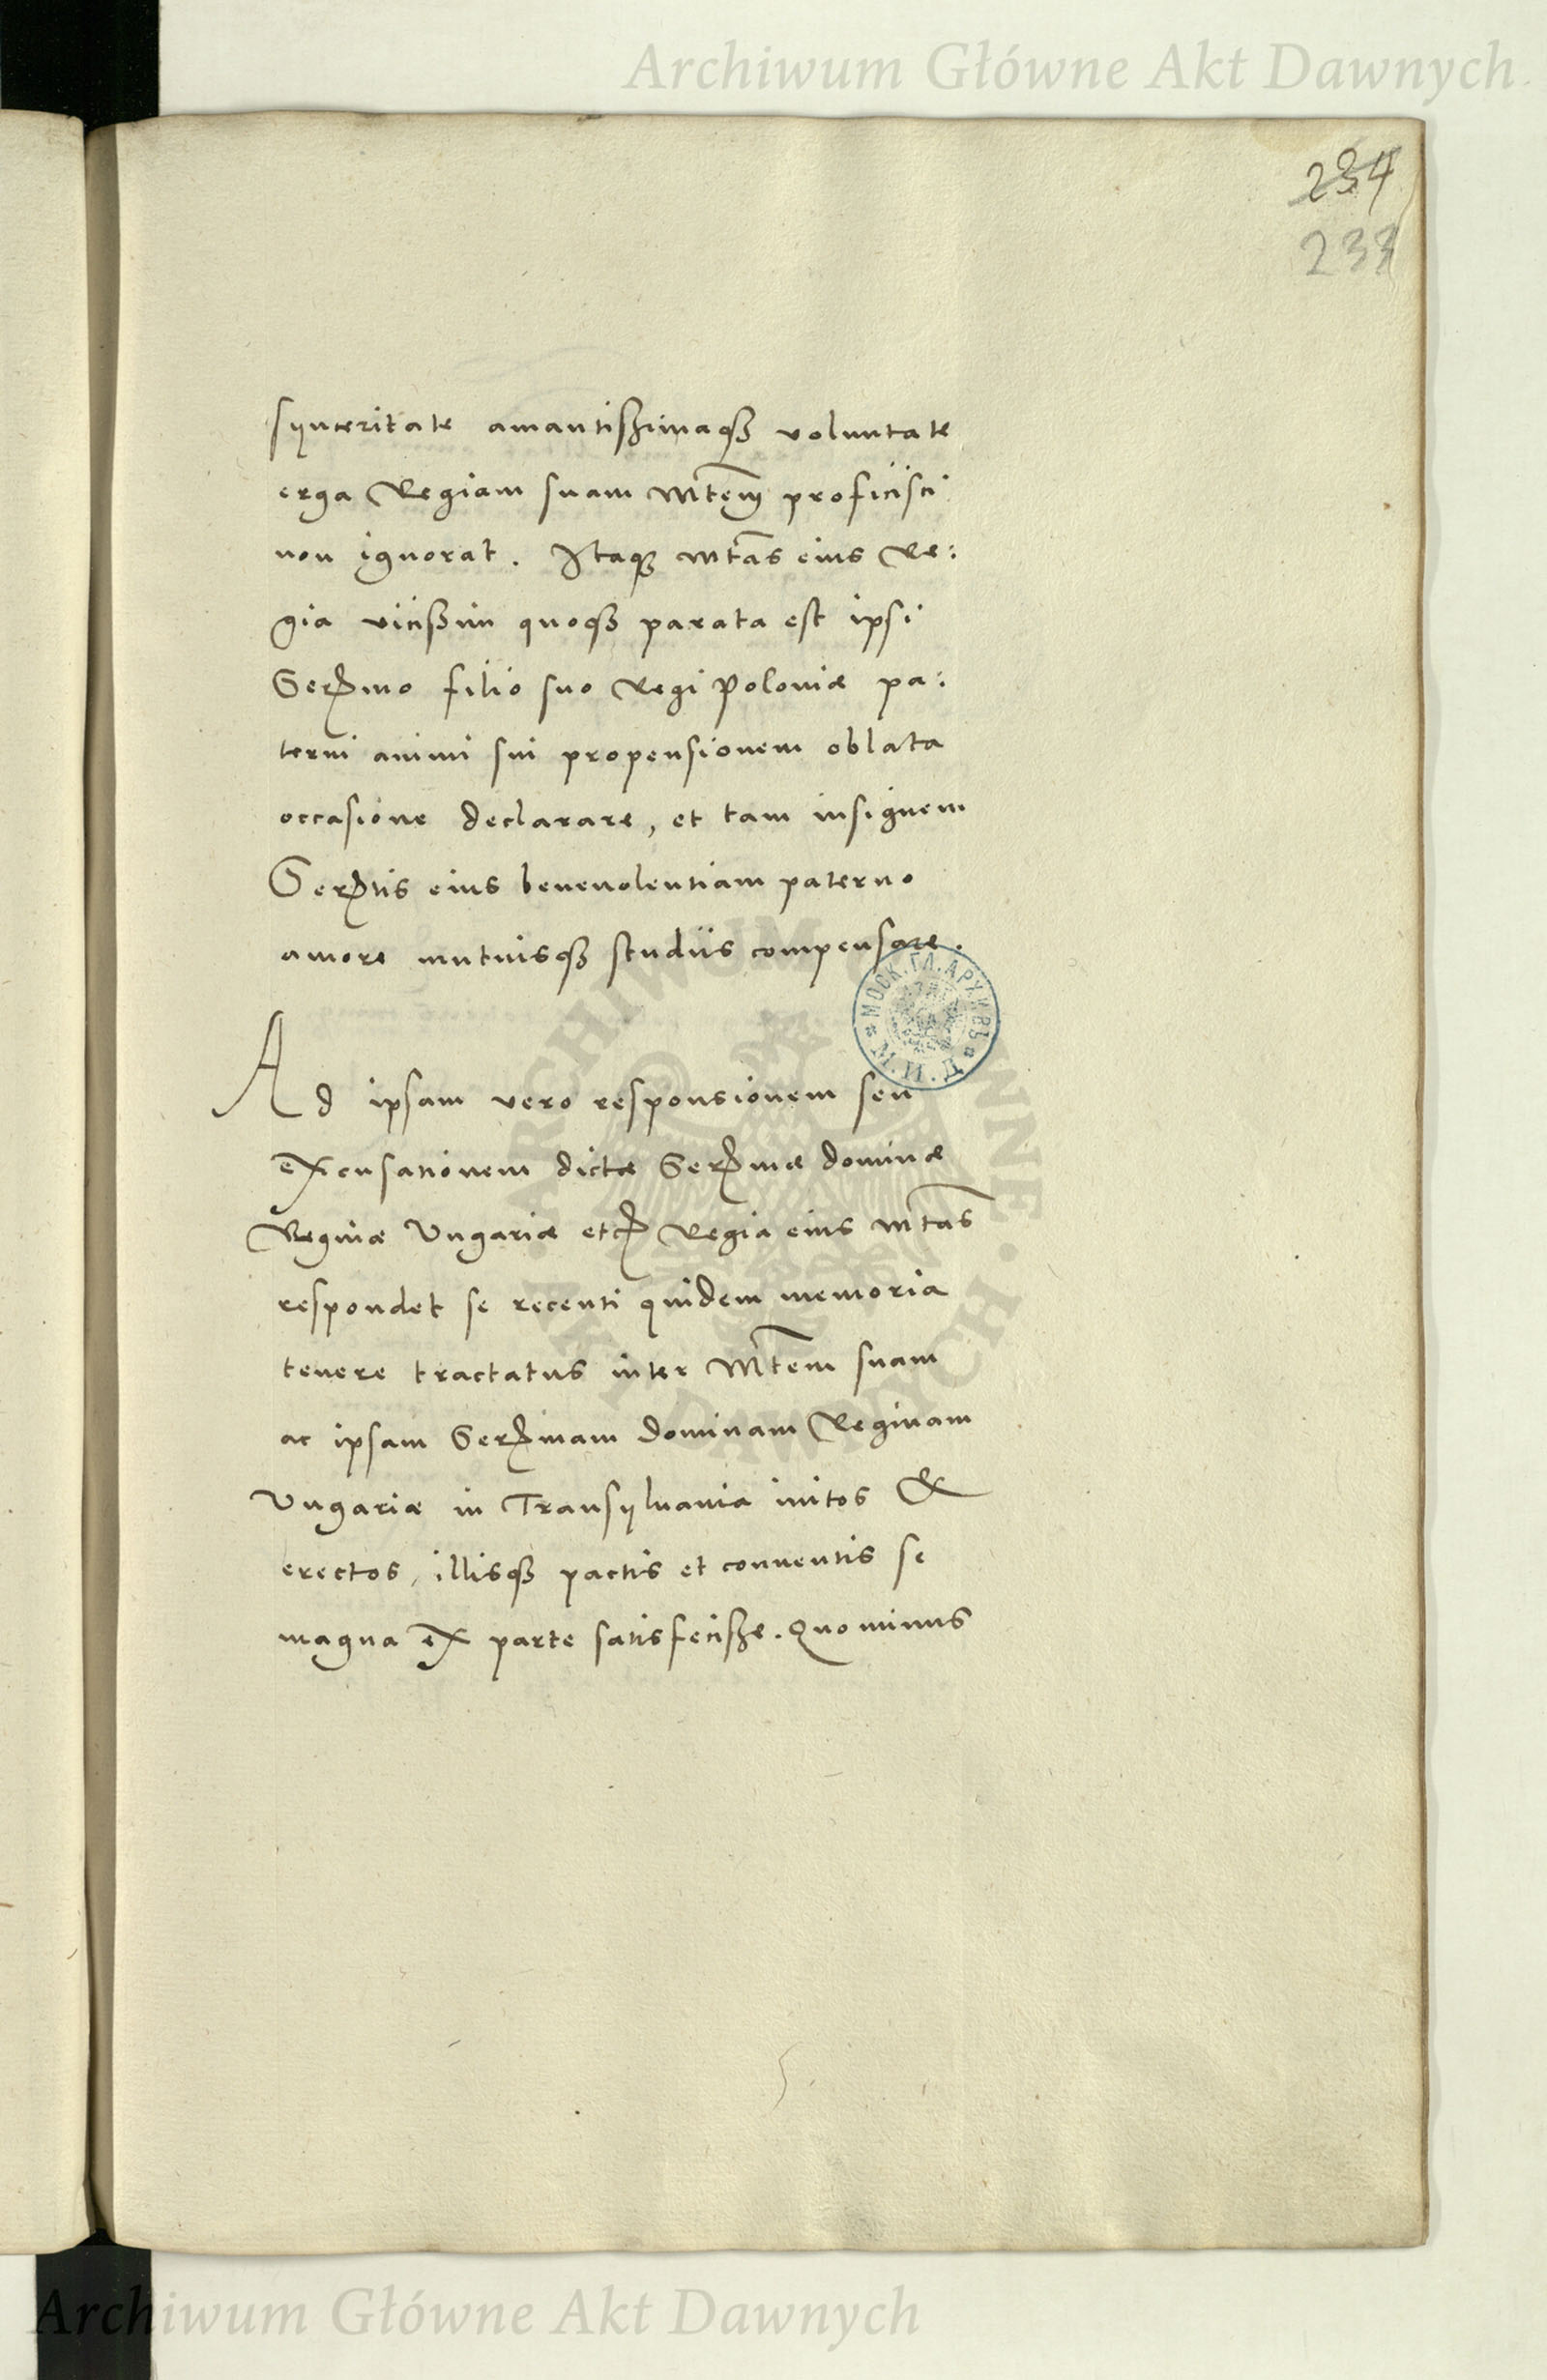 Archiwum Główne Akt Dawnych
234
233
synceritate amantissimaq3 voluntate
erga Regiam suam Mtem proficisci
non ignorat. Itaq3 Mtas eius Re:
gia vicissim quoq3 parata est ipsi
Sermo filio suo Regi Poloniæ pa:
terni animi sui propensionem oblata
occasione declarare, et tam insignem
Sertis eius beneuolentiam paterno
amore mutuisq3 studiis compensare.
МОСК. ГЛ. АРХИВЪ М. И. Д.
Ad ipsam vero responsionem seu
excusationem dictæ Sermæ dominæ
Reginæ Vngariæ etc Regia eius Mtas
respondet se recenti quidem memoria
tenere tractatus inter Mtem suam
ac ipsam Sermam dominam Reginam
Vngariæ in Transyluania initos &
erectos, illisq3 pactis et conuentis se
magna ex parte satisfecisse. Quominus
ARCHIWUM GŁÓWNE AKT DAWNYCH
Archiwum Główne Akt Dawnych